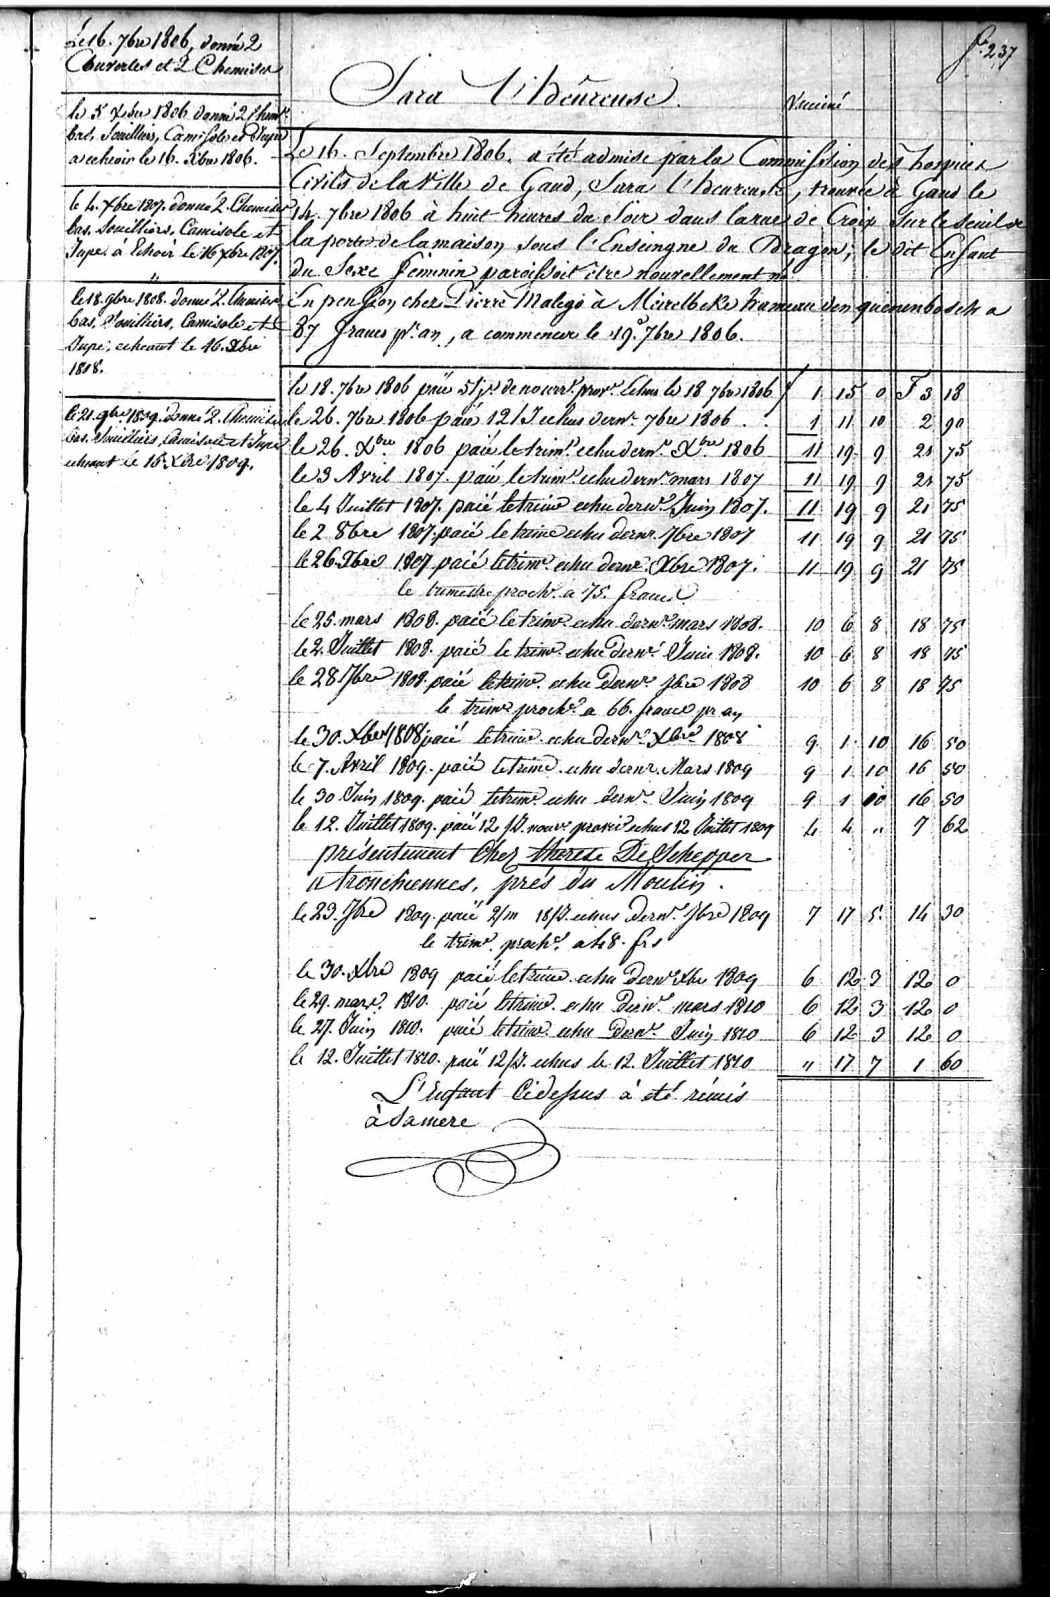 f.° 237
Le 16. 7bre 1806, donné 2
Couvertes et 2 Chemises
le 5 Xbre 1806 donné 2 Chem.
bas, Souilliers, Camisole et Jupe
a echeoir le 16. Xbre 1806.
le 4. Xbre 1807. donné 2. Chemises
bas, Souilliers, Camisole et
Jupe à Echoir le 16 Xbre 1807.
le 18. 9bre 1808. donné 2. Chemises
bas, Souilliers, Camisole et
Jupe, echeant le 16. Xbre
1808.
le 21. 9bre 1809. donné 2. Chemises
bas, Souilliers, Camisole et Jupe
echeant le 16 Xbre 1809.
Sara l'heureuse.
Vacciné
Le 16. Septembre 1806. a été admise par la Commission des hospices
Civils de la Ville de Gand, Sara l'heureuse, trouvée à Gand le
14. 7bre 1806 à huit heures du Soir dans la rue de Croix Sur le Seuil de
la porte de la maison, Sous l'Enseingne du Dragon, le dit Enfant
du Sexe féminin paroissoit être nouvellement né
En pension chez Pierre Malego à Meirelbeke hameau den quenenbosch a
87 francs pr. an, a commencer le 19.e 7bre 1806.
le 18. 7bre 1806 paié 5 js. de nourr.e prov.e echus le 18 7bre 1806 £ 1 15 0 F 3 18
le 26. 7bre 1806 paié 12 J echus dern.r 7bre 1806 . . 1 11 10 2 90
le 26. Xbre 1806 paié le trim.e echu dern.r Xbre 1806 11 19 9 21 75
le 3 Avril 1807. paié le trim.e echu dern.r mars 1807 11 19 9 21 75
le 4 Juillet 1807. paié le trime echu dern.r Juin 1807. 11 19 9 21 75
le 2 8bre 1807. paié le trime echu dernr 7bre 1807 11 19 9 21 75
le 26. Xbre 1807 paié le trim.e echu dern.r Xbre 1807. 11 19 9 21 75
le trimestre proch.n a 75. francs.
le 25. mars 1808. paié le trim.e echu dern.r mars 1808. 10 6 8 18 75
le 2. Juillet 1808. paié le trim.e echu dern.r Juin 1808. 10 6 8 18 75
le 28 7bre 1808 paié le trim.e echu Dern.r 7bre 1808 10 6 8 18 75
le trim.e proch.n a 66. francs pr an
le 30. Xbre 1808 paié le trime echu dern.r Xbre 1808 9 1 10 16 50
le 7. Avril 1809. paié le trime echu dern.r Mars 1809 9 1 10 16 50
le 30 Juin 1809. paié le trim.e echu dern.r Juin 1809 9 1 10 16 50
le 12. Juillet 1809. paié 12 Js. nourr.e provis. echus 12 Juillet 1809 4 4 " 7 62
présentement Chez therese De Schepper
a tronchiennes, près du Moulin.
le 23. 7bre 1809. paié 2/m 18/J. echus dern.r 7bre 1809 7 17 5 14 30
le trim.e proch.n a 48. frs
le 30. Xbre 1809 paié le trime echu dern.r Xbre 1809 6 12 3 12 0
le 29. mars. 1810. paié le trime echu Dern.r mars 1810 6 12 3 12 0
le 27. Juin 1810. paié le trim.e echu Dern.r Juin 1810 6 12 3 12 0
le 12. Juillet 1810. paié 12 Js. echus le 12. Juillet 1810 " 17 7 1 60
L'Enfant Cidessus à été rémis
à Sa mere